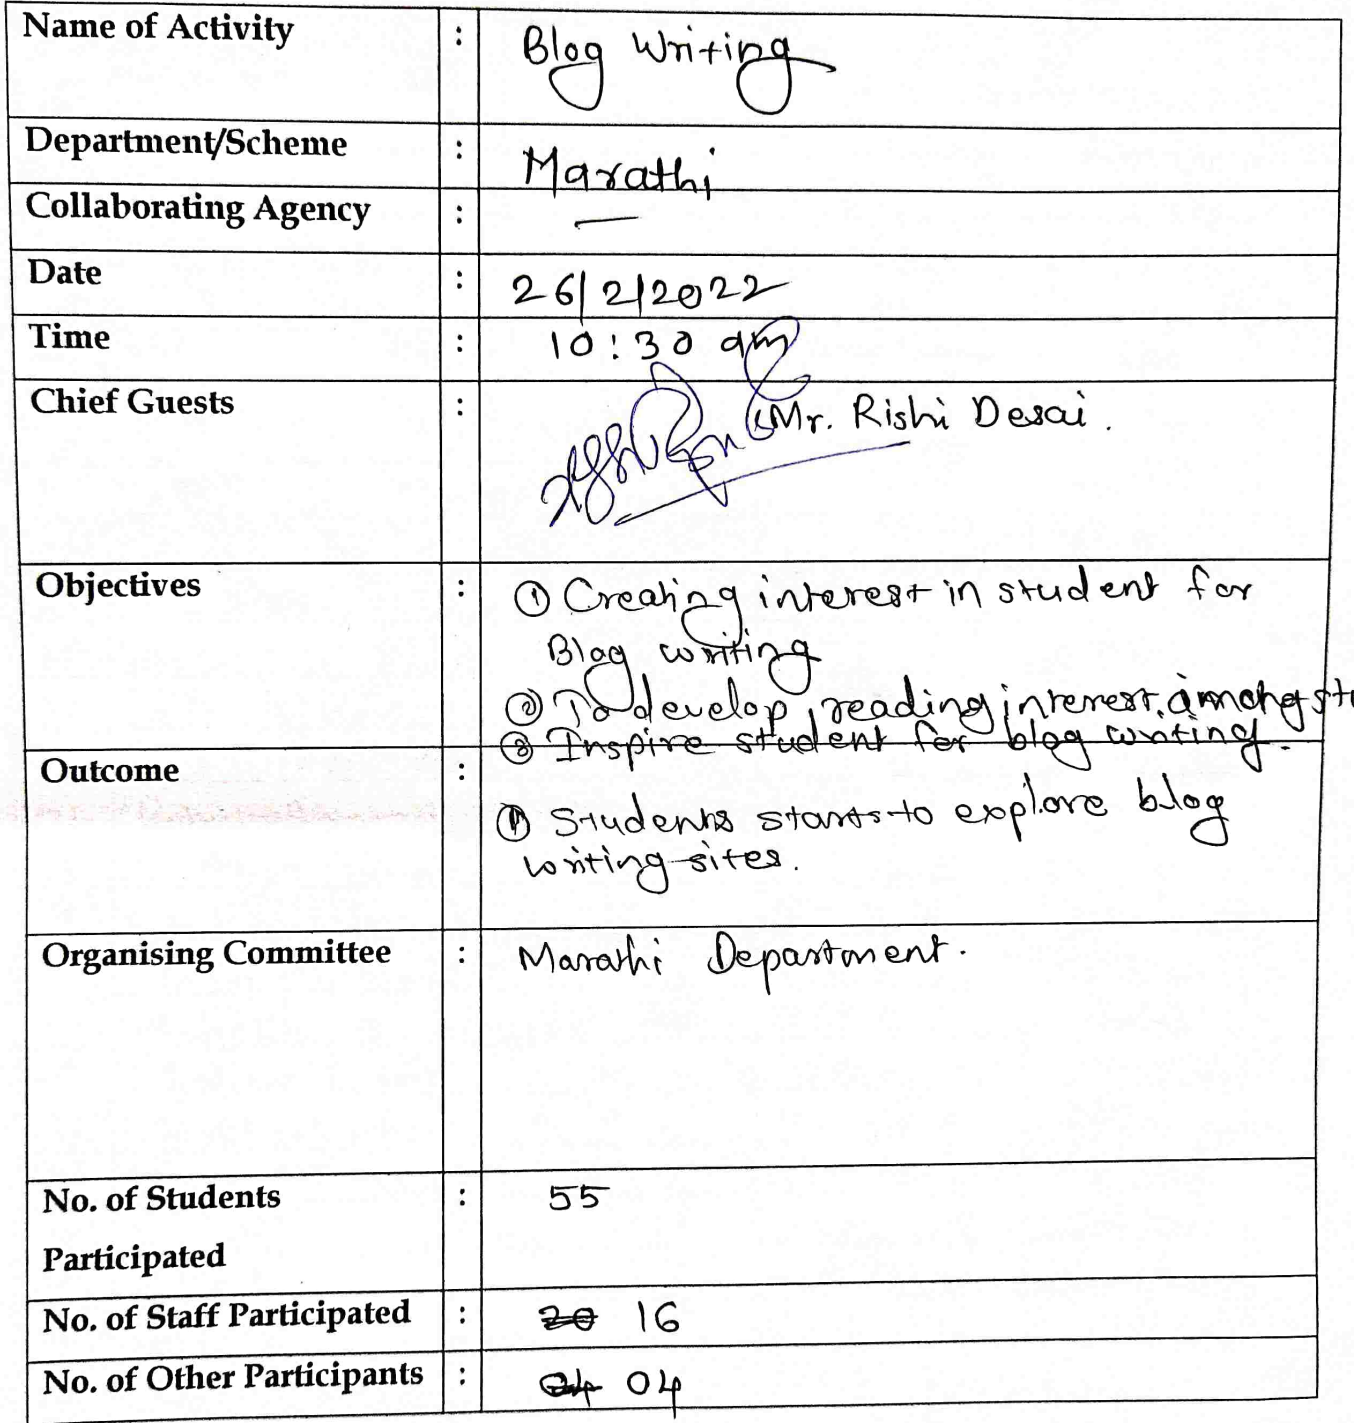 Name of Activity : Blog Writing
Department/Scheme : Marathi
Collaborating Agency : —
Date : 26/2/2022
Time : 10:30 am
Chief Guests : Mr. Rishi Desai.
Objectives : ① Creating interest in student for
Blog writing
② To develop reading interest among stu
③ Inspire student for blog writing.
Outcome :
① Students starts to explore blog
writing sites.
Organising Committee : Marathi Department.
No. of Students : 55
Participated
No. of Staff Participated : 20 16
No. of Other Participants : 04 04